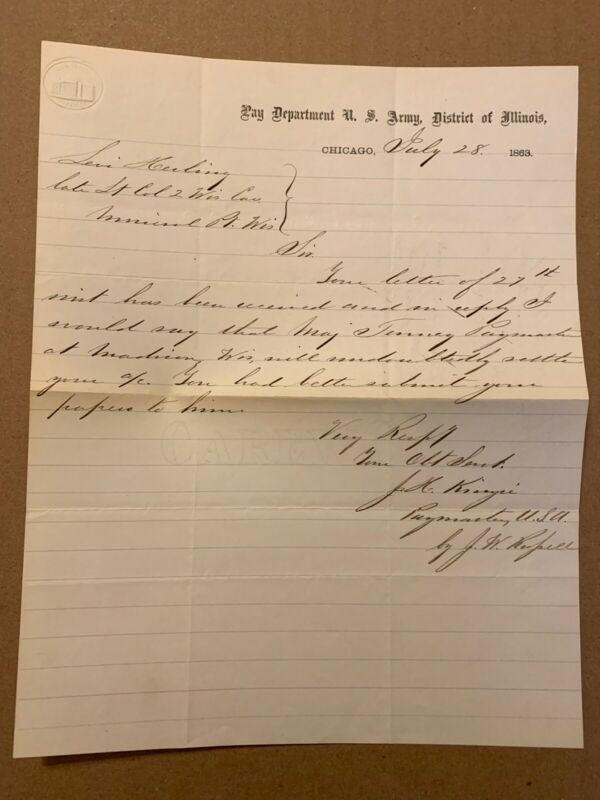 Pay Department U. S. Army, District of Illinois,
CHICAGO, July 28. 1863.
Levi Sterling
late Lt Col 2 Wis Cav
Mineral Pt. Wis
Sir.
Your letter of 27th
inst has been received and in reply I
would say that Maj Tenney Paymaster
at Madison, Wis, will undoubtedly settle
your a/c. You had better submit your
papers to him.
Very Respf
Your Obt Servt.
J. H. Kinzie
Paymaster, U.S.A.
by J. W.